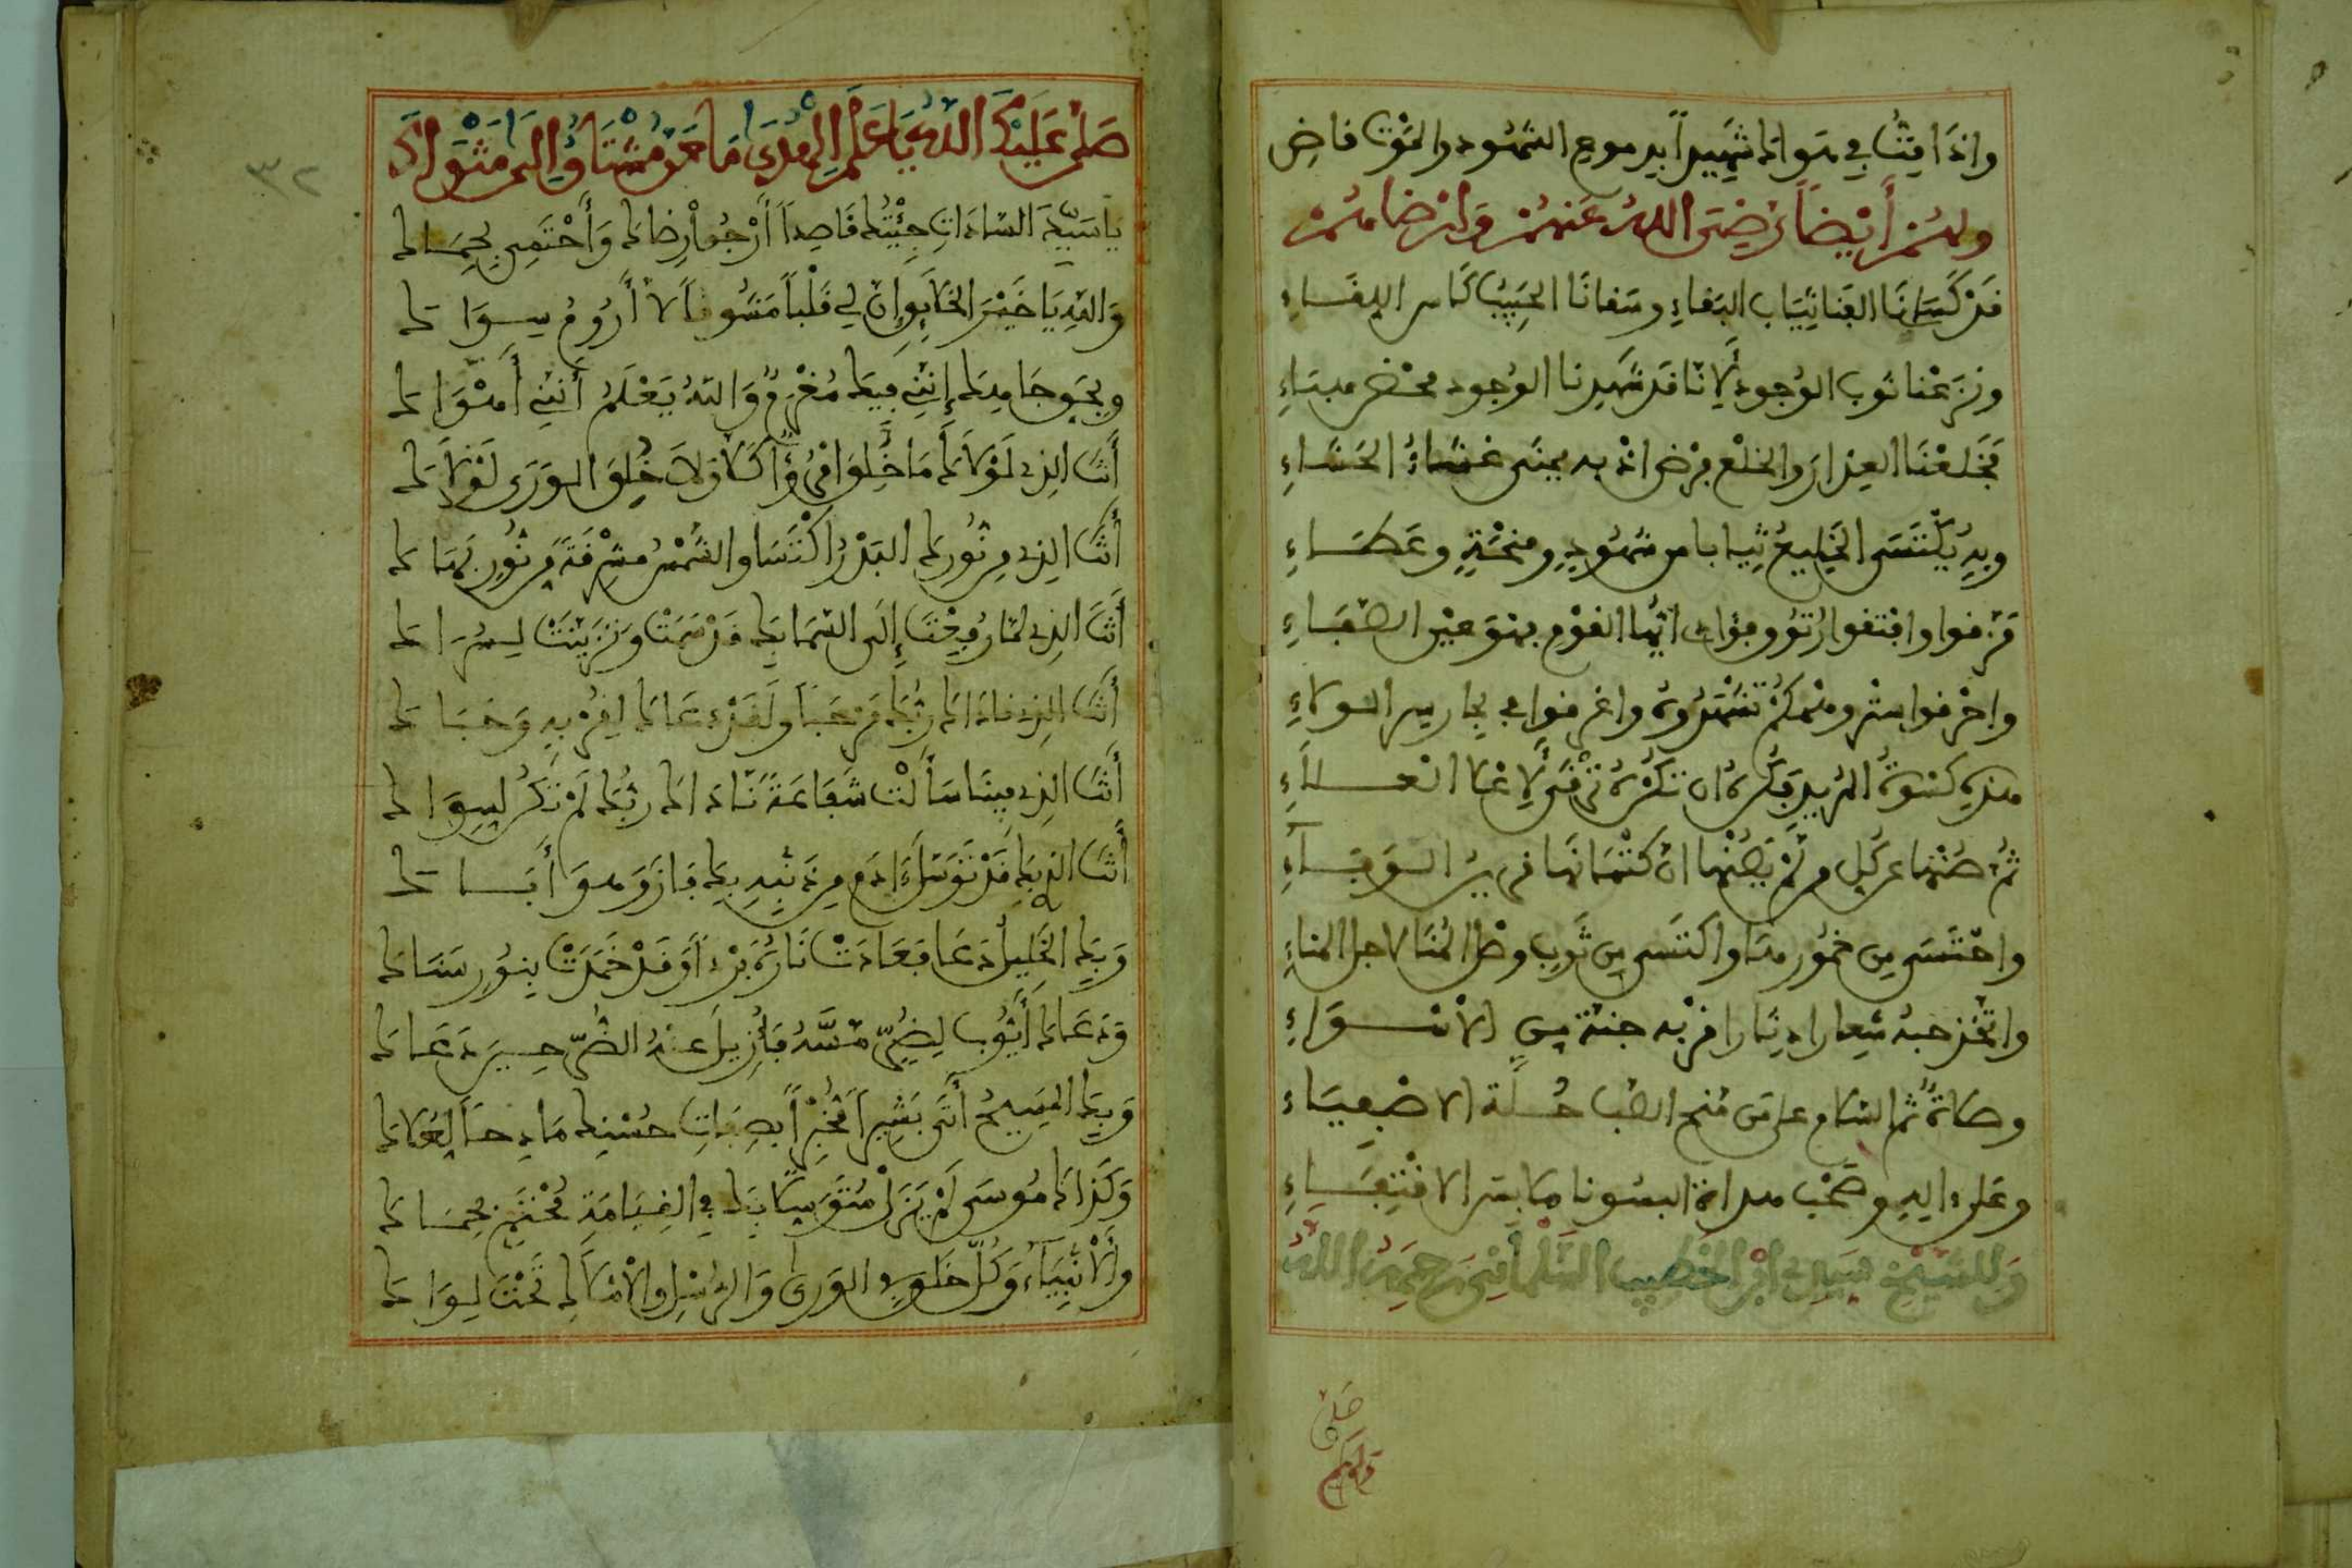 واذا مت في هواك شهيدا بدموع الشهود والحق قاض
ولهم أيضا رضي الله عنهم وارضاهم
قد كسانا الفنا ثياب البقاء وسقانا الحبيب كاس اللقاء
ونزعنا ثوب الوجود لانا قد شهدنا الوجود محض هباء
فخلعنا العذار والخلع فرض اذ به يمتحى غشاء الحشاء
وبه يكتسى الخليع ثيابا من شهود ومنحة وعطاء
مزقوا وافتقوا رتوق فؤاد ايها القوم فهو عين الصفاء
واخرقوا بشر وهمكم تشهدوه واغرقوا في بحار سر الولاء
هذه كسوة المريد فكره ان تكره ترقى لاعلا العلاء
ثم صنها عن كل من لم يصنها ان كتمانها من سر الوفاء
واحتسى من خمور هذا واكتسى من ثوب وصل الهنا لاجل الهناء
واتخذ حبه شعارا دثارا قربه جنة من الاسواء
وصلاة ثم السلام على من منح الصب حلة الاصفياء
وعلى اله وصحب هداة البسونا ملابس الاقتفاء
وللشيخ سيدي ابن الخطيب السلماني رحمه الله
صلى
عليكم
٣٢
صلى عليك الله يا علم الهدى ما حن مشتاق الى مثواك
يا سيد السادات جئتك قاصدا أرجو رضاك وأحتمي بحماك
والله يا خير الخلائق إن لي قلبا مشوقا لا أروم سواك
وبحق جاهك إنني فيك مغرم والله يعلم أنني أهواك
أنت الذي لولاك ما خلق امرؤ كلا ولا خلق الورى لولاك
أنت الذي من نورك البدر اكتسا والشمس مشرقة من نور بهاك
أنت الذي لما رفعت إلى السما بك قد سمت وتزينت لسراك
أنت الذي ناداك ربك مرحبا ولقد دعاك لقربه وحباك
أنت الذي فينا سألت شفاعة ناداك ربك لم تكن لسواك
أنت الذي قد توسل ءادم من ذنبه بك فاز وهو أباك
وبك الخليل دعا فعادت ناره بردا وقد خمدت بنور سناك
ودعاك أيوب لضر مسه فأزيل عنه الضر حين دعاك
وبك المسيح أتى بشيرا مخبرا بصفات حسنك مادحا لعلاك
وكذاك موسى لم يزل متوسلا بك في القيامة محتم بحماك
والأنبياء وكل خلق في الورى والرسل والأملاك تحت لواك